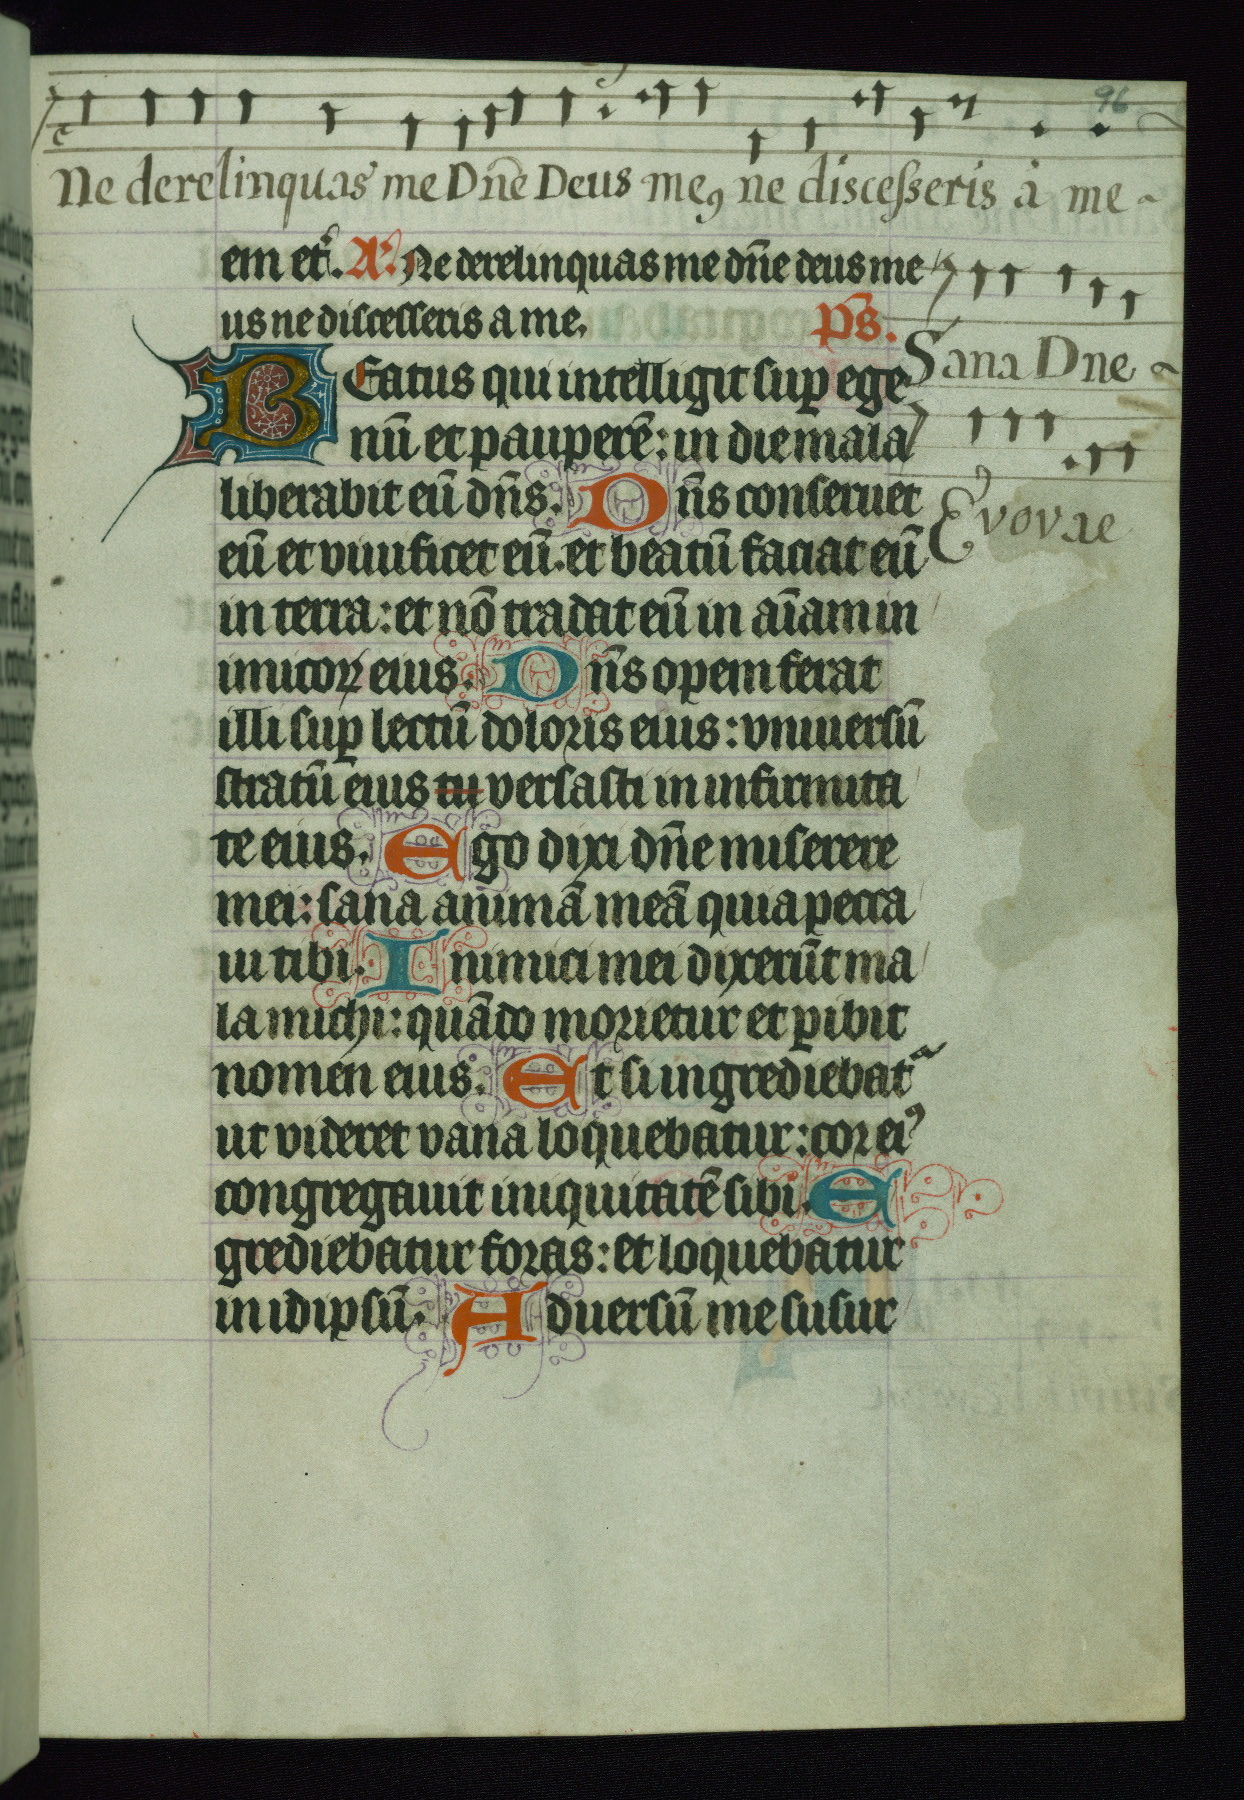 96
Ne derelinquas me Dn̄e Deus meꝯ ne discesseris à me
em et̾. A᷒. Ne derelinquas me dn̄e deus me
us ne discesseris a me. p̄s.
Sana Dne
BEatus qui intelligit suꝑ ege
nū et pauperē: in die mala
liberabit eū dn̄s. Dn̄s conseruet
Evovae
eū et viuificet eū. et beatū faciat eū
in terra: et nō tradat eū in aīam in
imicoꝝ eius. Dn̄s opem ferat
illi suꝑ lectū doloris eius: vniuersū
stratū eius tu versasti in infirmita
te eius. Ego dixi dn̄e miserere
mei: sana animā meā quia pecca
ui tibi. Inimici mei dixerūt ma
la michi: quādo morietur et ꝑibit
nomen eius. Et si ingrediebatᷓ
ut videret vana loquebatur: cor eiꝰ
congregauit iniquitatē sibi. E
grediebatur foras: et loquebatur
in idipsū. Aduersū me susur